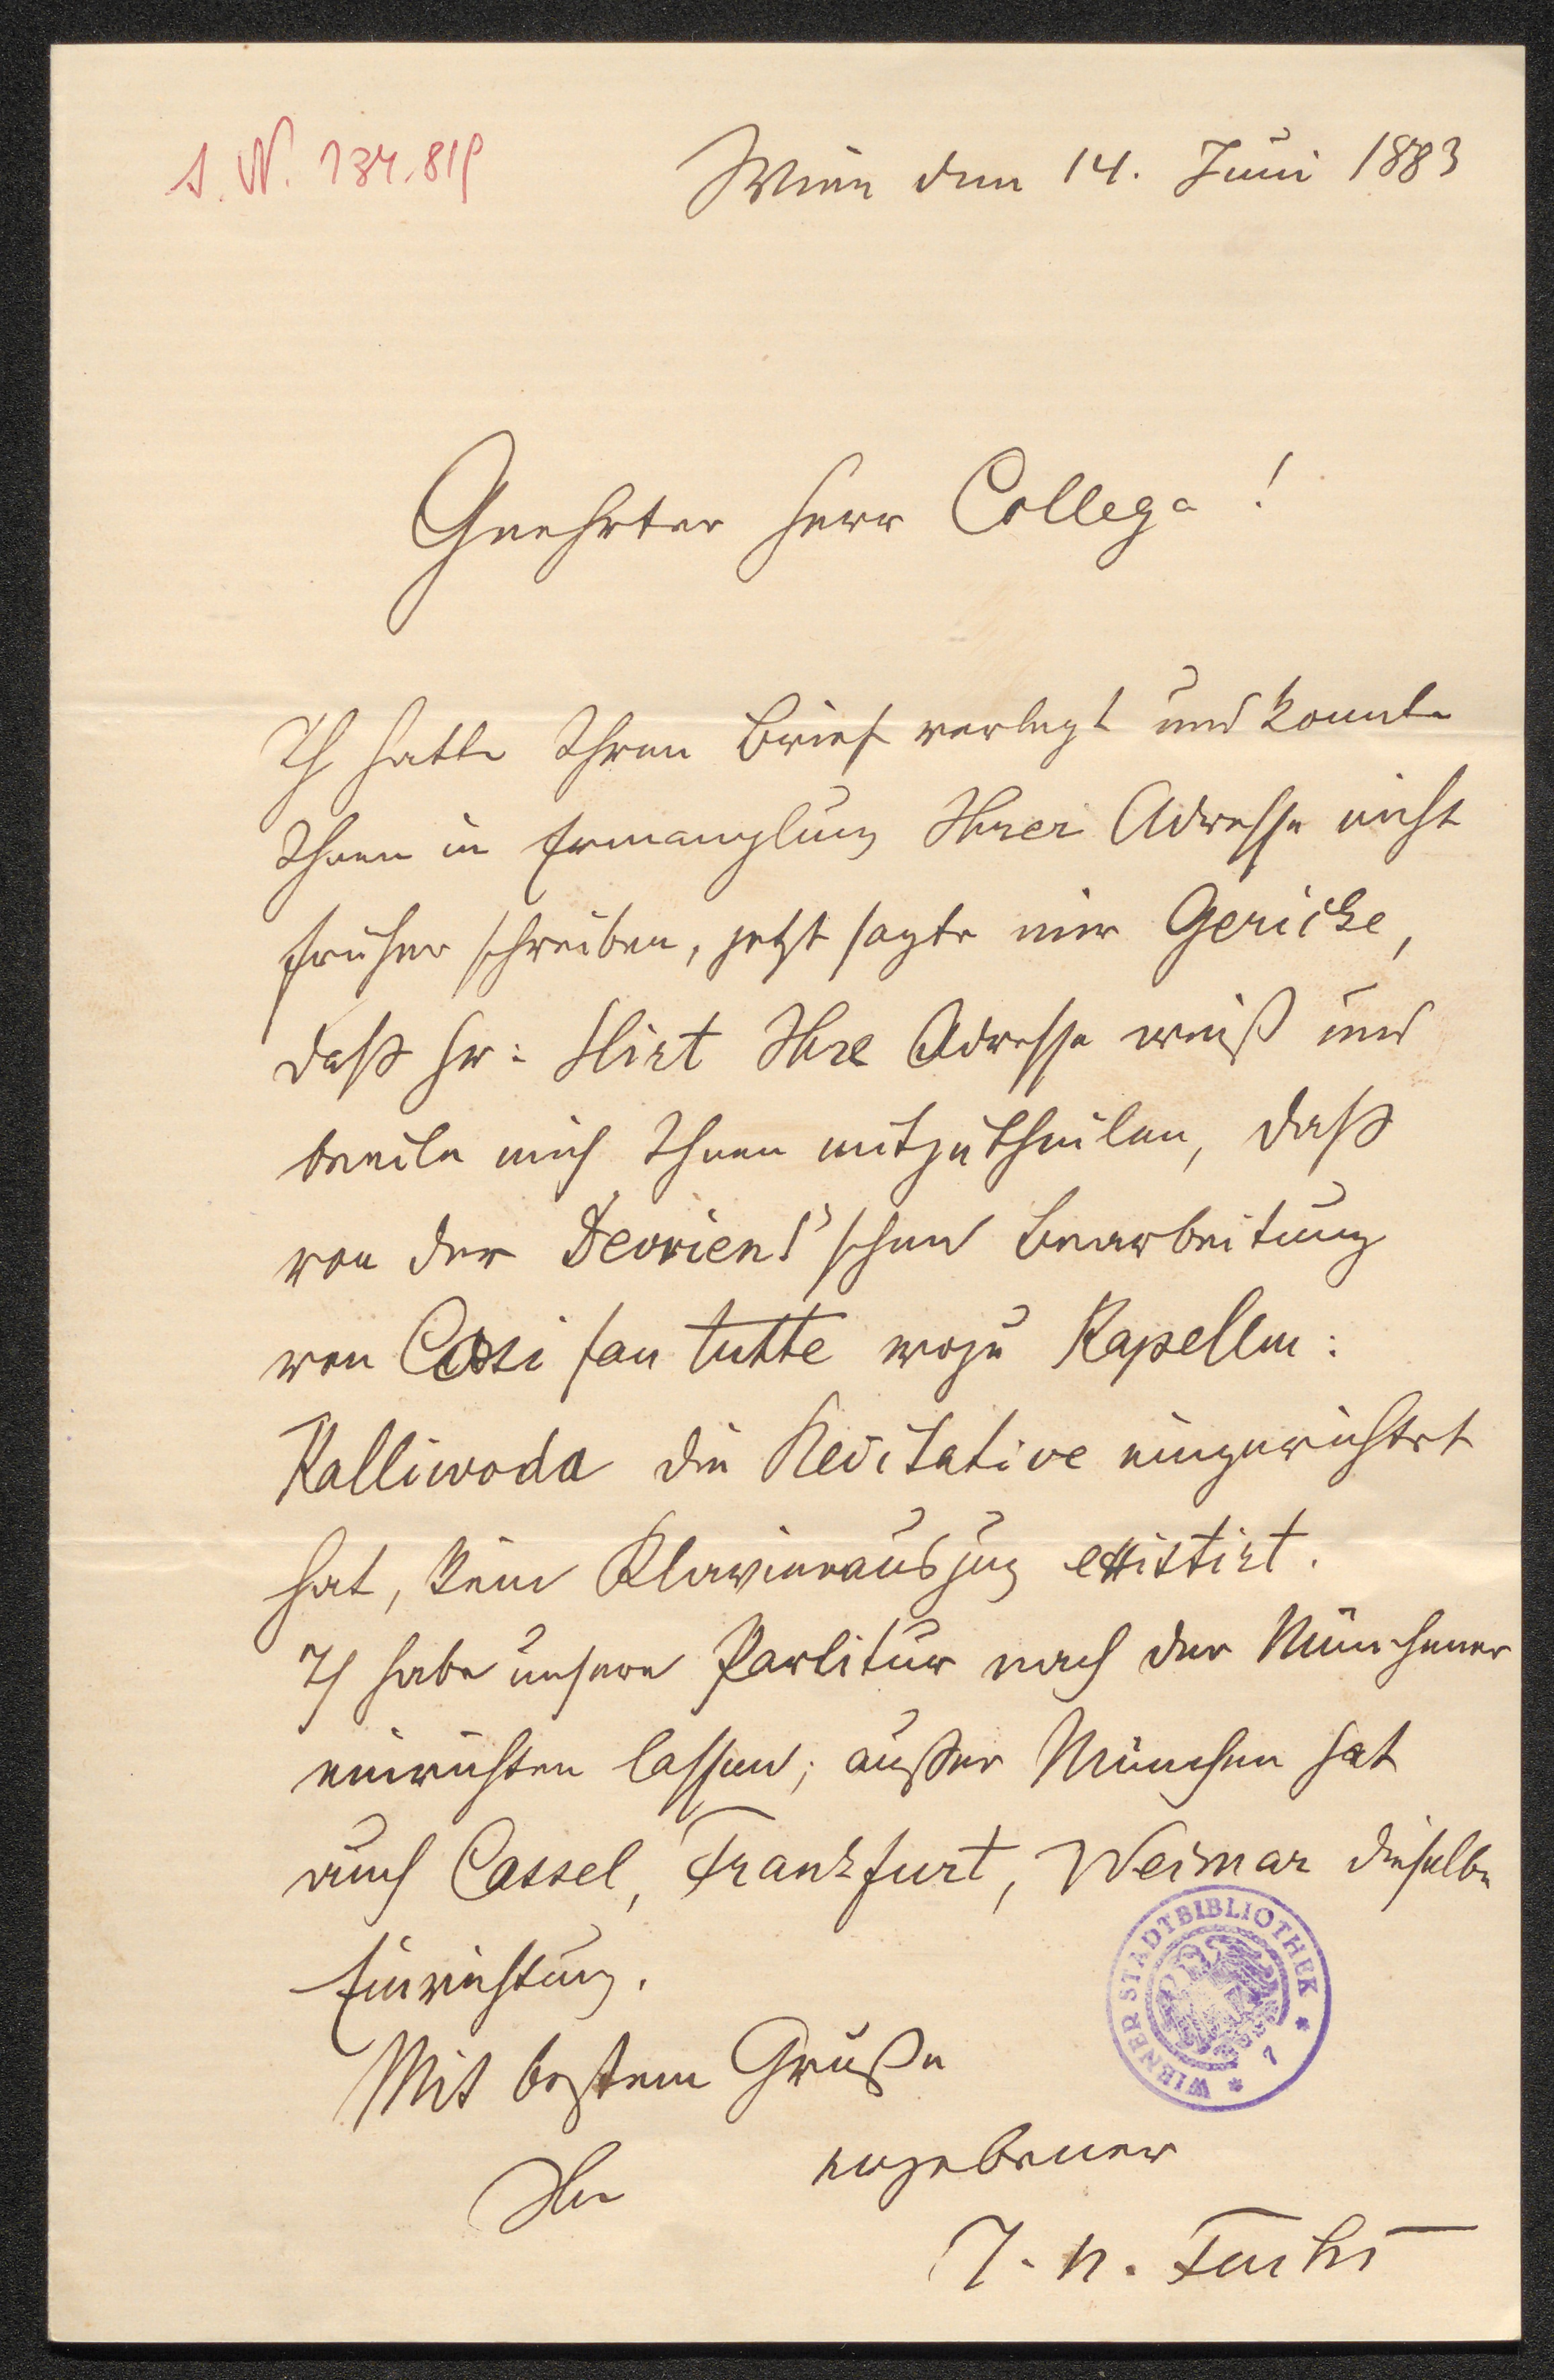 J. N. 134.819
Wien den 14. Juni 1883
Geehrter Herr Collega!
Ich hatte Ihren Brief verlegt und konnte
Ihnen in Ermanglung Ihrer Adresse nicht
früher schreiben, jetzt sagte mir Gericke,
daß Hr: Hirt Ihre Adresse weiß und
beeile mich Ihnen mitzutheilen, daß
von der Devrient'schen Bearbeitung
von Cosi fan tutte wozu Kapellm:
Kalliwoda die Recitative eingerichtet
hat, kein Klavierauszug existirt.
Ich habe unsere Partitur nach der Münchener
einrichten lassen; außer München hat
auch Cassel, Frankfurt, Weimar dieselbe
Einrichtung.
Mit bestem Gruße
Ihr ergebener
J. N. Fuchs
WIENER STADTBIBLIOTHEK * 7 *